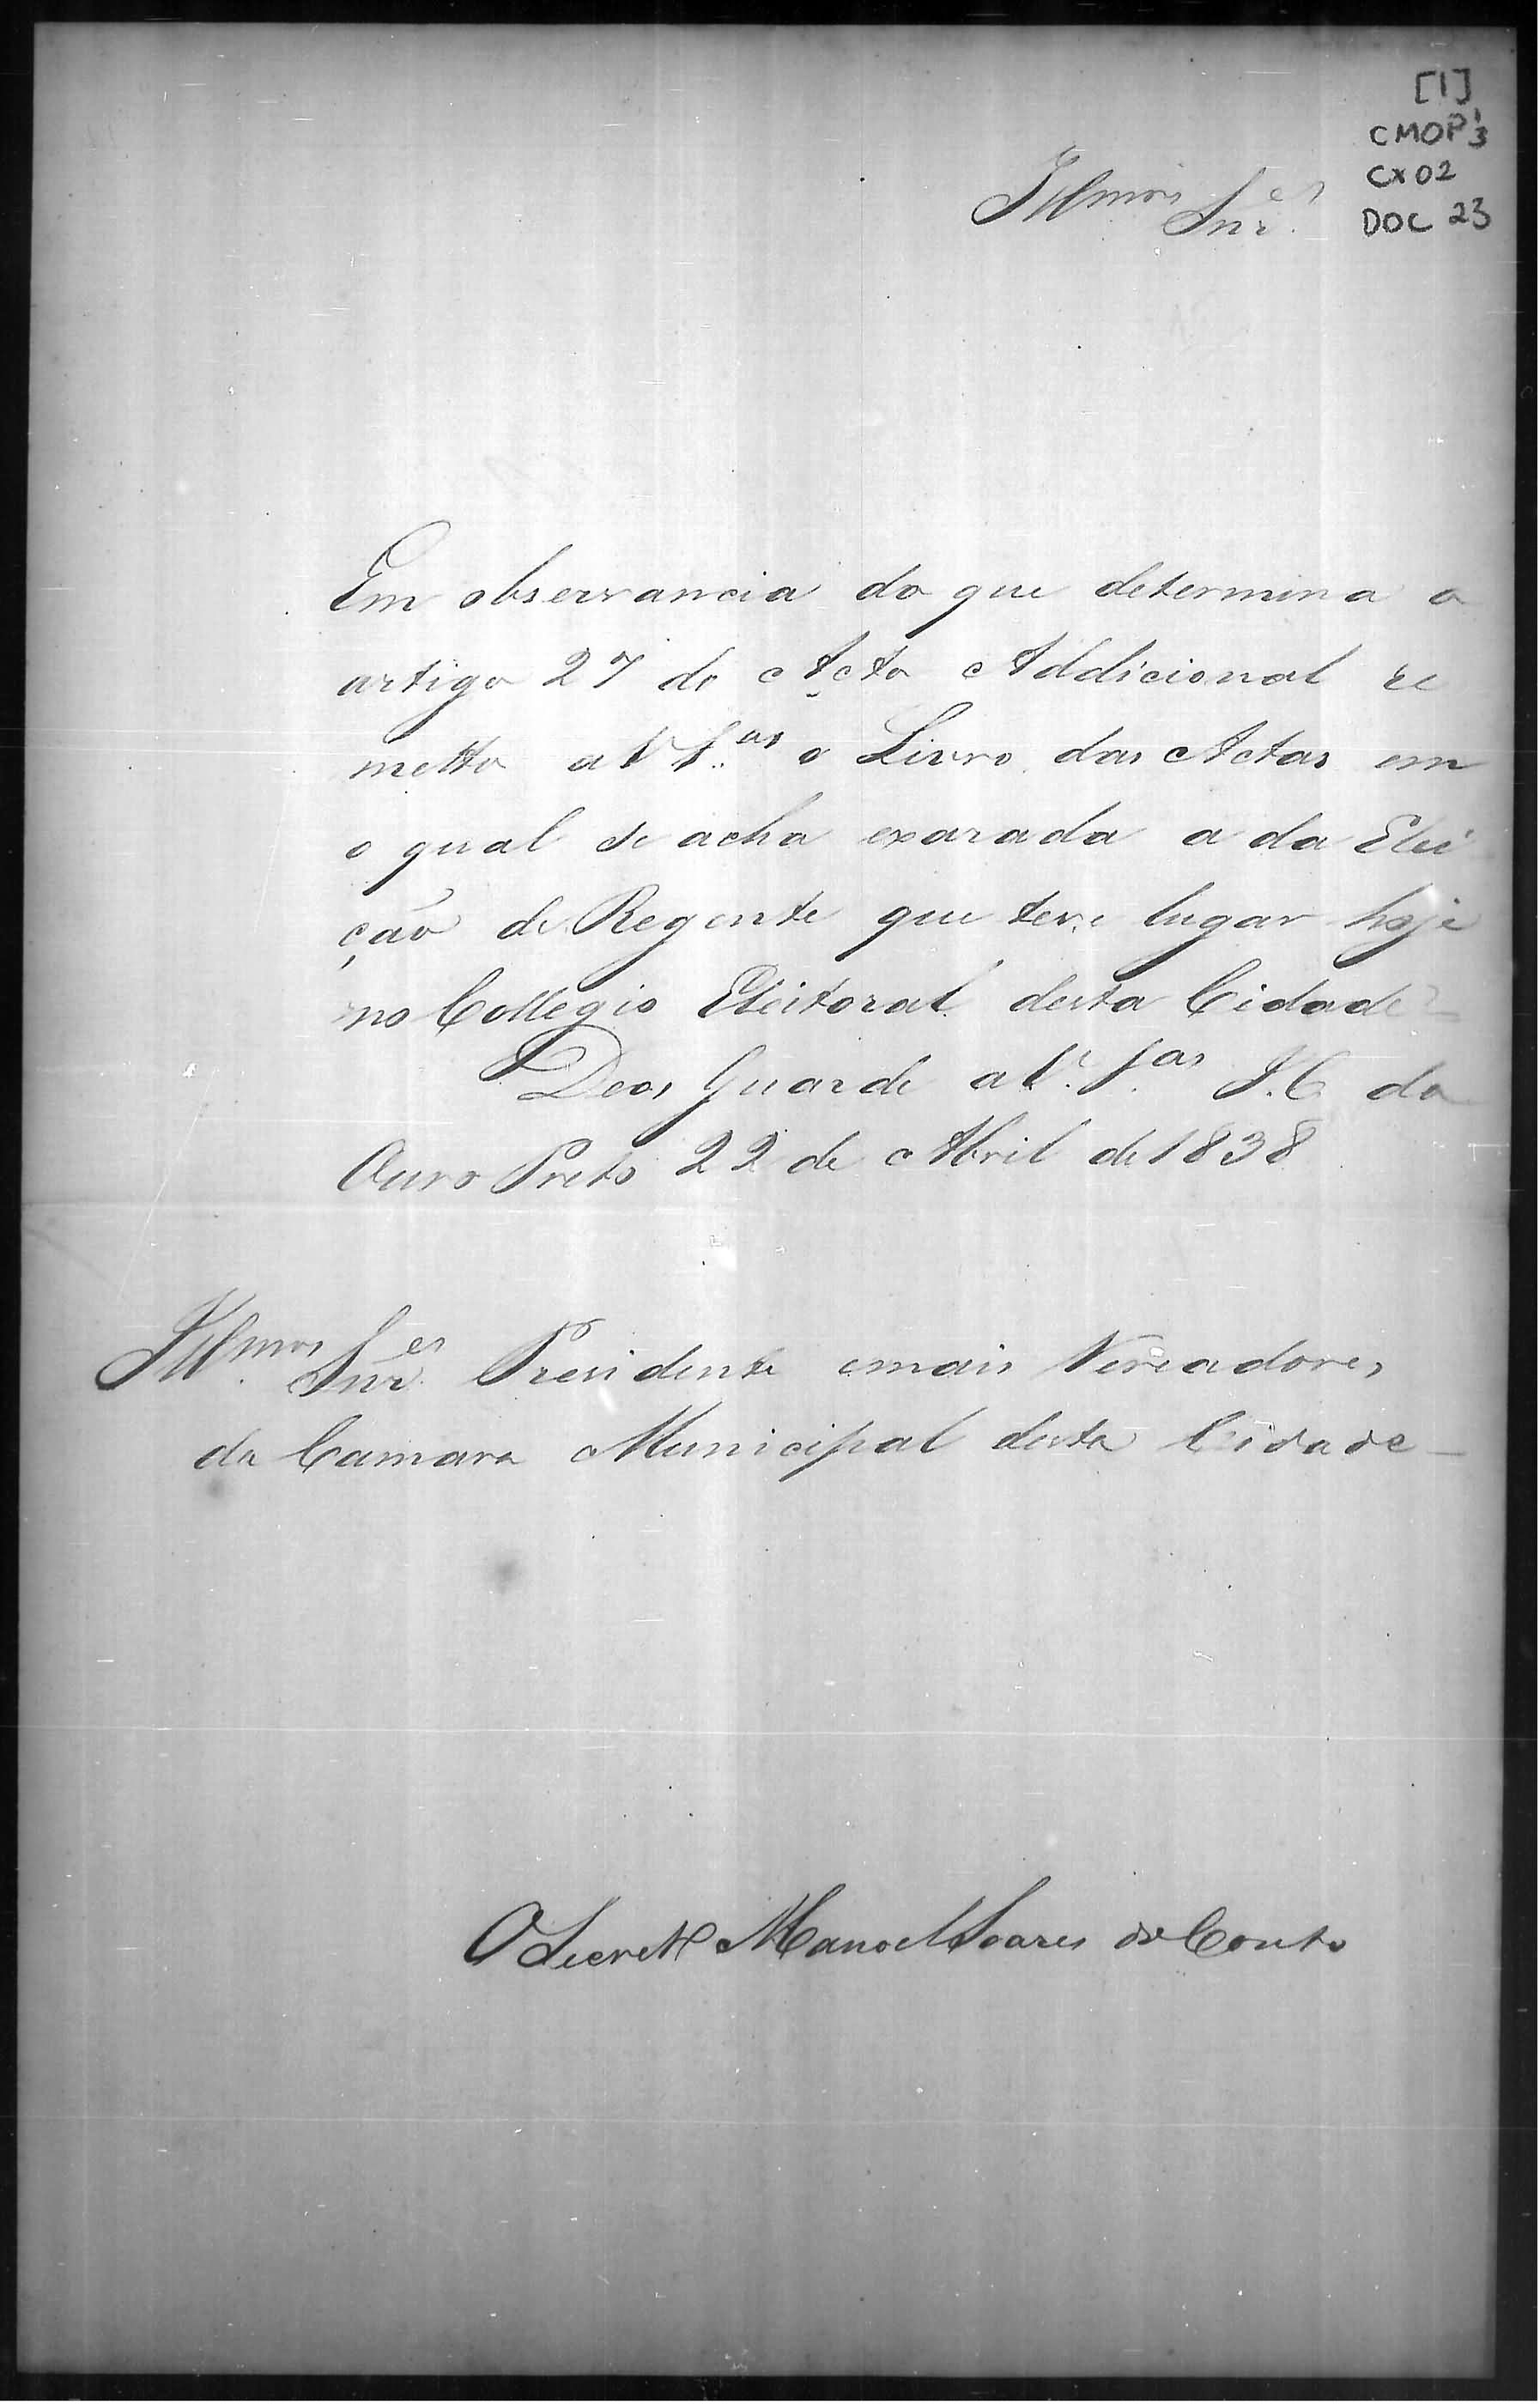 [1]
CMOP 13
CX 02
DOC 23
Illmos Snr.es
Em observancia do que determina o
artigo 27 do Acto Addicional re
metto a V. S.as o Livro das Actas em
o qual se acha exarada a da Elei
ção de Regente que teve lugar hoje
no Collegio Eleitoral desta Cidade
Deos Guarde a V. S.as I. C. do
Ouro Preto 22 de Abril de 1838
Illmos Snr.es Presidente e mais Vereadores
da Camara Municipal desta Cidade
O Secret.o Manoel Soares do Couto